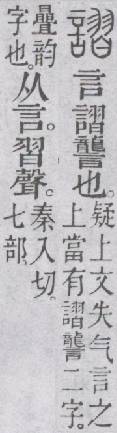 謵 言謵讋也。疑上文失气言之上當有謵讋二字。
疊韵字也。从言。習聲。秦入切。七部